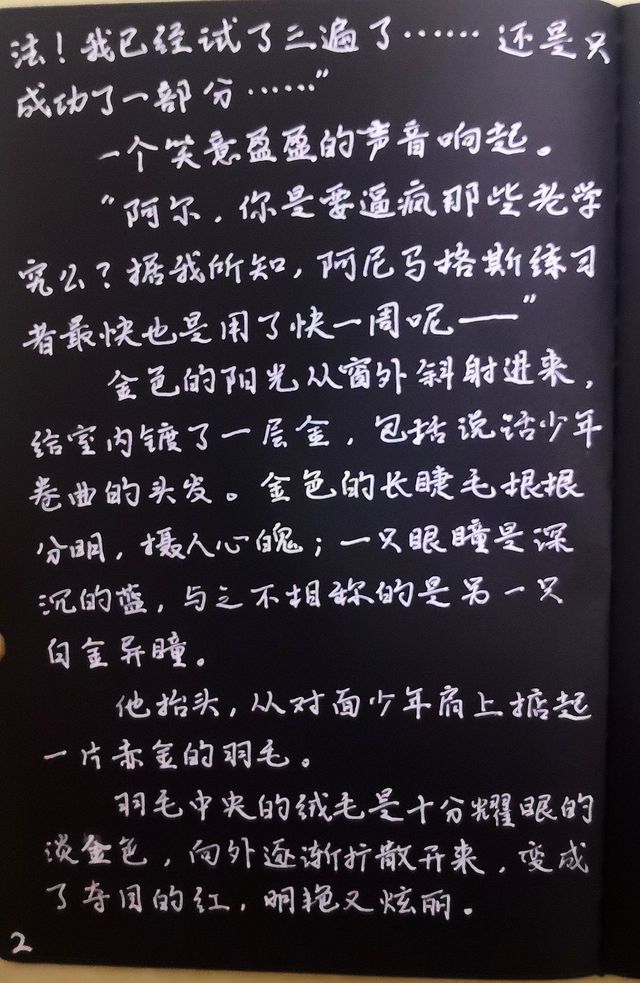 法！我已经试了三遍了……还是只
成功了一部分……”
一个笑意盈盈的声音响起。
“阿尔，你是要逼疯那些老学
究么？据我所知，阿尼马格斯练习
者最快也是用了快一周呢——”
金色的阳光从窗外斜射进来，
给室内镀了一层金，包括说话少年
卷曲的头发。金色的长睫毛根根
分明，摄人心魄；一只眼瞳是深
沉的蓝，与之不相称的是另一只
白金异瞳。
他抬头，从对面少年肩上掂起
一片赤金的羽毛。
羽毛中央的绒毛是十分耀眼的
淡金色，向外逐渐扩散开来，变成
了夺目的红，明艳又炫丽。
2